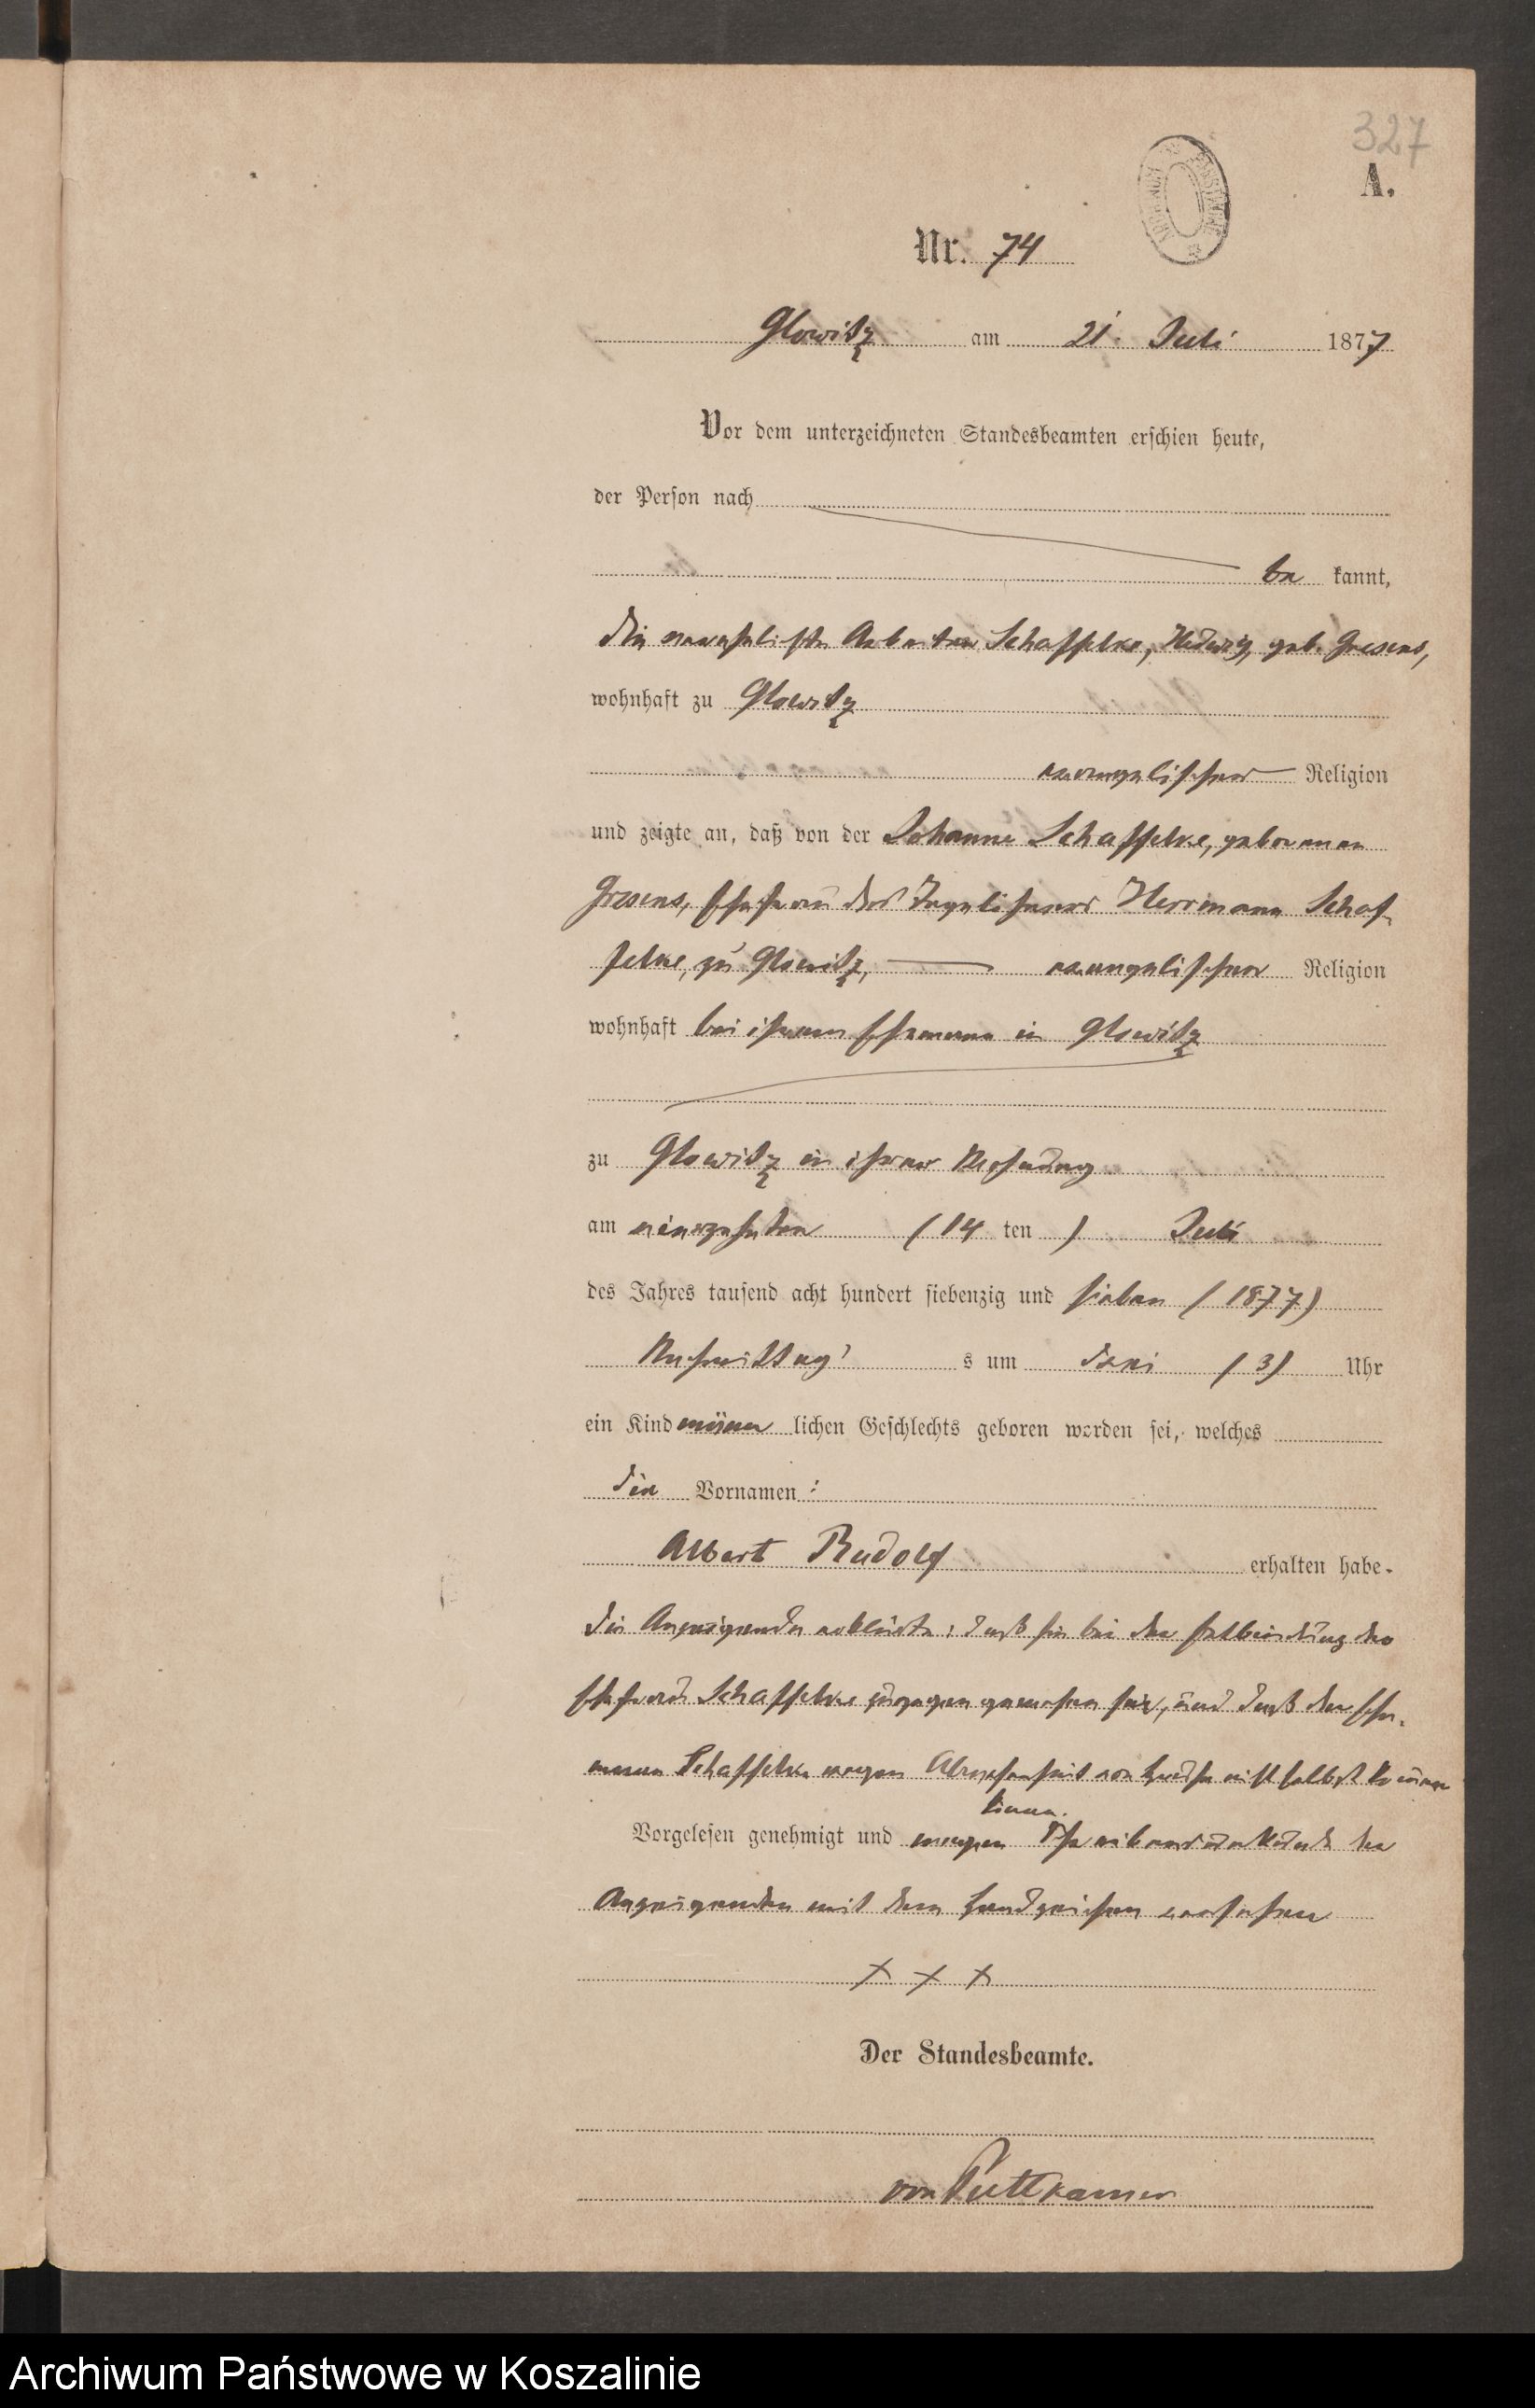 327
A.
Nr. 74
Glowitz am 21. Juli 1877
Vor dem unterzeichneten Standesbeamten erschien heute,
der Person nach
be kannt,
die verehelichte Arbeiter Schaffelke, Hedwig, geb. Gresens,
wohnhaft zu Glowitz
evangelischer Religion
und zeigte an, daß von der Johanne Schaffelke, geborenen
Gresens, Ehefrau des Tagelöhners Herrmann Schaf-
felke, zu Glowitz, evangelischer Religion
wohnhaft bei ihrem Ehemann in Glowitz
zu Glowitz in ihrer Wohnung
am vierzehnten (14 ten) Juli
des Jahres tausend acht hundert siebenzig und sieben (1877)
Nachmittag s um drei (3) Uhr
ein Kind männ lichen Geschlechts geboren worden sei, welches
die Vornamen:
Albert Rudolf erhalten habe.
Die Anzeigende erklärte; daß sie bei der Entbindung der
Ehefrau Schaffelke zugegen gewesen sei, und daß der Ehe-
mann Schaffelke wegen Abwesenheit von Hause nicht selbst kommen
könne.
Vorgelesen genehmigt und wegen der
Anzeigenden mit dem Handzeichen versehen
+ + +
Der Standesbeamte.
von Puttkamer
Archiwum Państwowe w Koszalinie